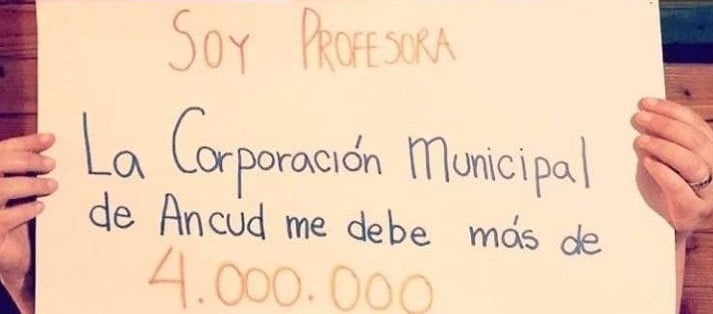 SOY PROFESORA
La Corporación Municipal
de Ancud me debe más de
4.000.000